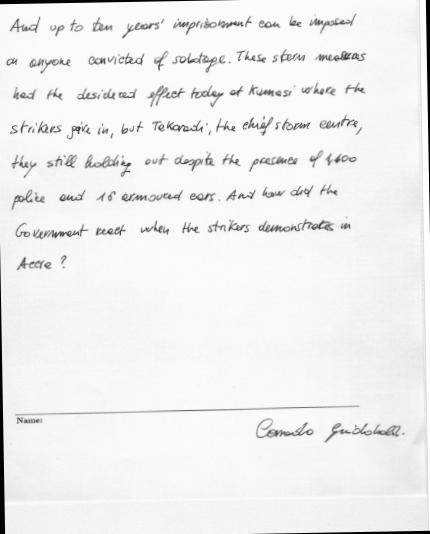 And up to ten years' imprisonment can be imposed
on anyone convicted of sabotage. These stern measures
had the desidered effect today at Kumasi where the
strikers gave in, but Takoradi, the chief storm centre,
they still holding out despite the presence of 1,400
police and 16 armoured cars. And how did the
Government react when the strikers demonstrates in
Accra?
Name: